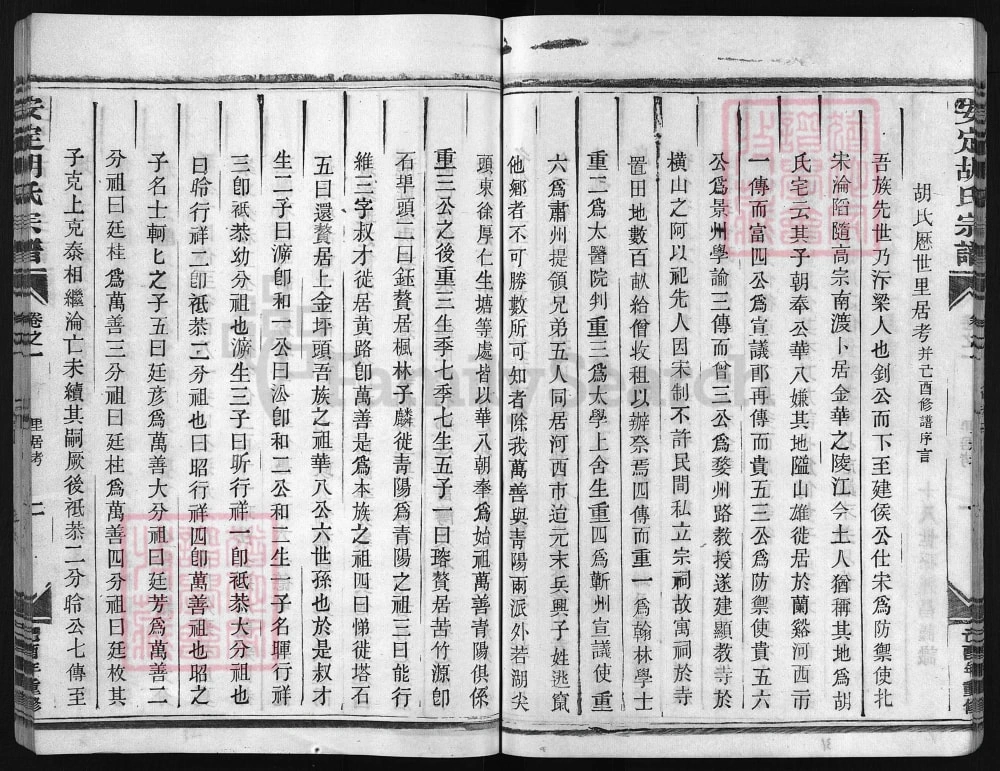 安定胡氏宗譜
胡氏歷世里居考并己酉修譜序言
吾族先世乃汴梁人也釗公而下至建侯公仕宋爲防禦使北
宋淪陷隨高宗南渡卜居金華之陵江今土人猶稱其地爲胡
氏宅云其子朝奉公華八嫌其地隘山雄徙居於蘭谿河西市
一傳而富四公爲宣議郎再傳而貴五三公爲防禦使貴五六
公爲景州學諭三傳而曾三公爲婺州路教授遂建顯教寺於
橫山之阿以祀先人因宋制不許民間私立宗祠故寓祠於寺
置田地數百畝給僧收租以辦祭焉四傳而重一爲翰林學士
重二爲太醫院判重三爲太學上舍生重四爲蘄州宣議使重
六爲肅州提領兄弟五人同居河西市迨元末兵興子姓逃竄
他鄉者不可勝數所可知者除我萬善與靑陽兩派外若湖尖
頭東徐厚仁生塘等處皆以華八朝奉爲始祖萬善青陽俱係
重三公之後重三生季七季七生五子一曰瑢贅居苦竹源卽
石埠頭二曰鈺贅居楓林子麟徙靑陽爲靑陽之祖三曰能行
維三字叔才徙居黃路卽萬善是爲本族之祖四曰悌徙塔石
五曰還贅居上金坪頭吾族之祖華八公六世孫也於是叔才
生二子曰澬卽和一公曰泓卽和二公和二生一子名暉行祥
三卽祇恭幼分祖也澬生三子曰昕行祥一卽祇恭大分祖也
曰晗行祥二卽祇恭二分祖也曰昭行祥四卽萬善祖也昭之
子名士軻士軻之子五曰廷彥爲萬善大分祖曰廷芳爲萬善二
分祖曰廷桂爲萬善三分祖曰廷柱爲萬善四分祖曰廷枚其
子克上克泰相繼淪亡未續其嗣厥後祇恭二分晗公七傳至
安定胡氏宗譜
卷之一
里居考